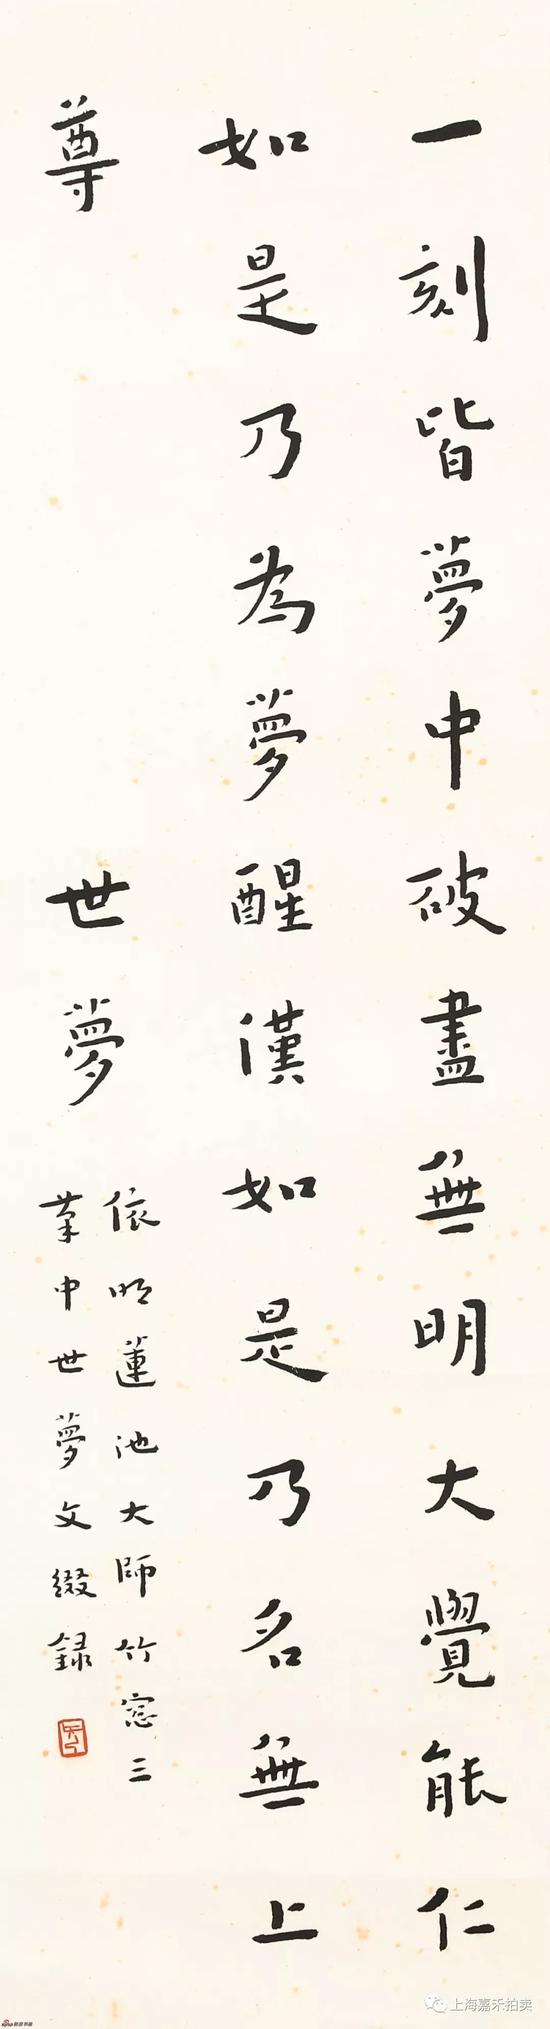 一刻皆夢中破盡無明大覺能仁
如是乃為夢醒漢如是乃名無上
尊
世夢
依明蓮池大師竹窓三
筆中世夢文綴録
上海嘉禾拍卖
sina 新浪收藏